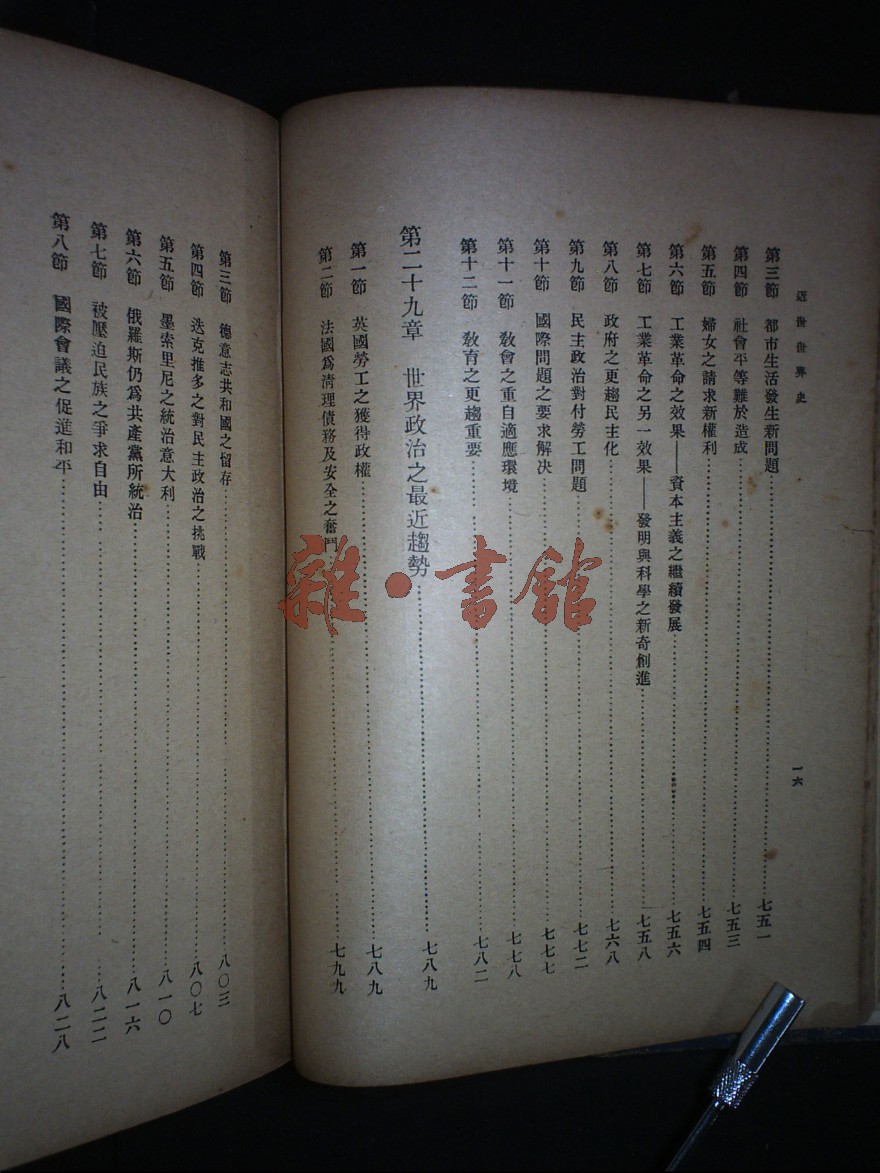 近世世界史
一六
第三節 都市生活發生新問題 七五一
第四節 社會平等難於造成 七五三
第五節 婦女之請求新權利 七五四
第六節 工業革命之效果——資本主義之繼續發展 七五六
第七節 工業革命之另一效果——發明與科學之新奇創進 七五八
第八節 政府之更趨民主化 七六八
第九節 民主政治對付勞工問題 七七二
第十節 國際問題之要求解決 七七七
第十一節 教會之重自適應環境 七七八
第十二節 教育之更趨重要 七八二
第二十九章 世界政治之最近趨勢 七八九
第一節 英國勞工之獲得政權 七八九
第二節 法國爲清理債務及安全之奮鬥 七九九
第三節 德意志共和國之留存 八〇三
第四節 迭克推多之對民主政治之挑戰 八〇七
第五節 墨索里尼之統治意大利 八一〇
第六節 俄羅斯仍爲共產黨所統治 八一六
第七節 被壓迫民族之爭求自由 八二二
第八節 國際會議之促進和平 八二八
雜·書館